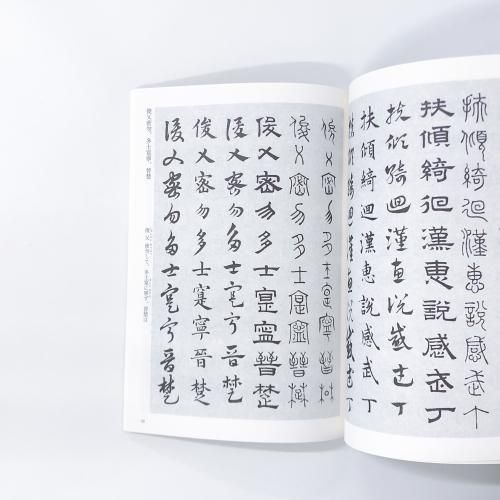 扶傾綺迴漢惠說感武丁
扶傾綺迴漢惠說感武丁
扶傾綺迴漢惠說感武丁
扶傾綺迴漢惠說感武丁
扶傾綺迴漢惠說感武丁
俊乂密勿多士寔寧晉楚
俊乂密勿多士寔寧晉楚
俊乂密勿多士寔寧晉楚
俊乂密勿多士寔寧晉楚
俊乂密勿多士寔寧晉楚
俊乂密勿多士寔寧晉楚
俊乂密勿、多士寔寧、晉楚